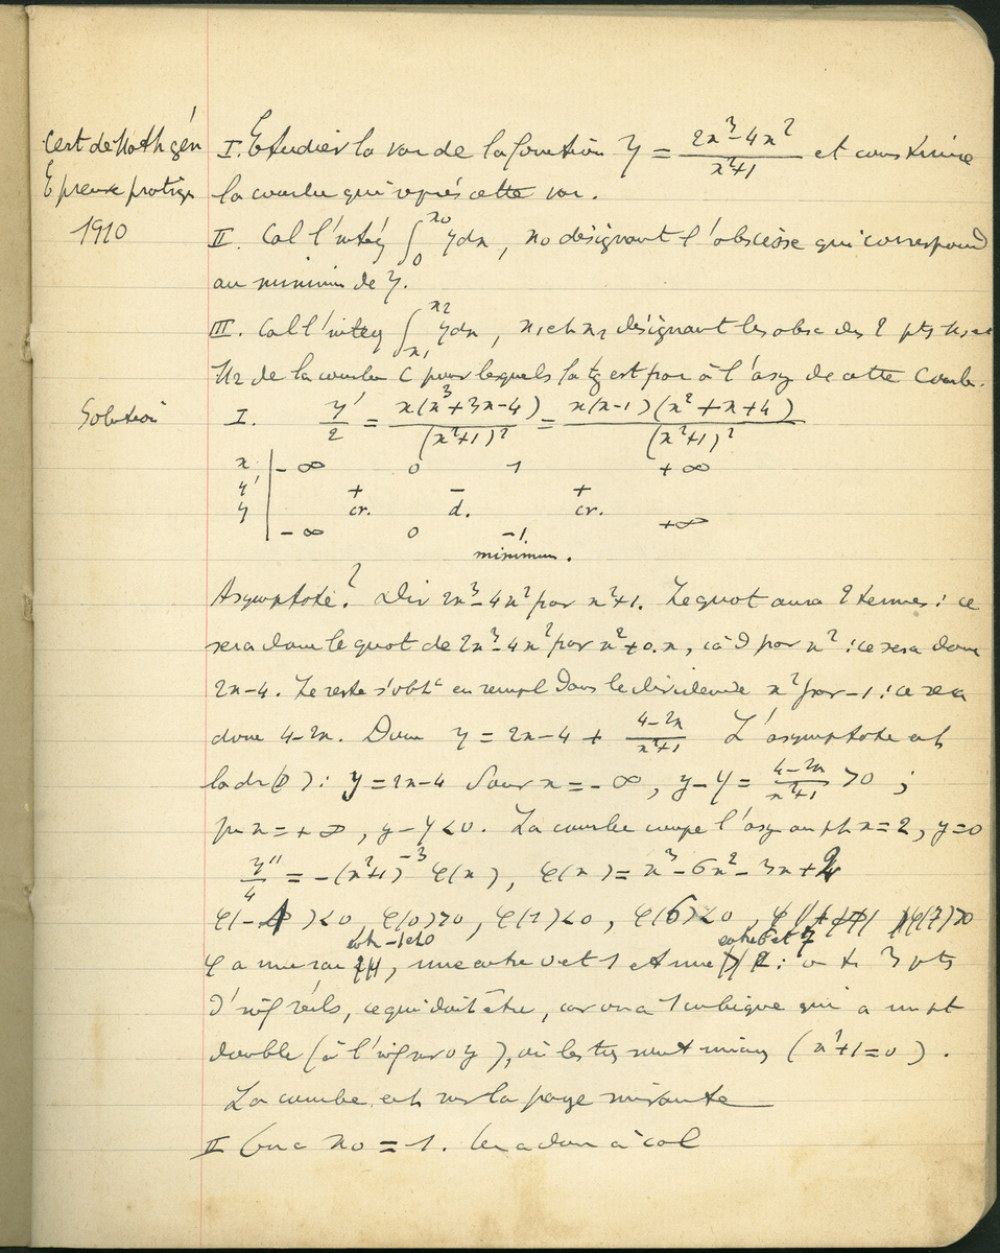 Cert de Math gén
Epreuve pratiq
1910
I. Etudier la var de la fonction y = (2x³-4x²)/(x²+1) et construire
la courbe qui représ cette var.
II. Cal l'intég ∫₀^x₀ ydx, x₀ désignant l'abscisse qui correspond
au minim de y.
III. Cal l'integ ∫_x₁^x₂ ydx, x₁ et x₂ désignant les absc des 2 pts M₁ et
M₂ de la courbe C pour lesquels la tg est par à l'asy de cette courbe.
Solution
I. y'/2 = x(x³+3x-4)/(x²+1)² = x(x-1)(x²+x+4)/(x²+1)²
x | -∞ 0 1 +∞
y' | + - +
y | cr. d. cr.
-∞ 0 -1. +∞
minimum.
Asymptote? Div 2x³-4x² par x²+1. Le quot aura 2 termes : ce
sera donc le quot de 2x³-4x² par x²+0.x, càd par x² : ce sera donc
2x-4. Le reste s'obt en rempl dans le dividende x² par -1 : ce sera
donc 4-2x. Donc y = 2x-4 + (4-2x)/(x²+1) L'asymptote est
la dr (D) : y = 2x-4 Pour x = -∞, y-Y = (4-2x)/(x²+1) >0 ;
pr x = +∞, y-Y<0. La courbe coupe l'asy au pt x=2, y=0
y''/4 = -(x²+1)⁻³ φ(x), φ(x) = x³-6x²-3x+2
φ(-1)<0, φ(0)>0, φ(1)<0, φ(6)<0, φ(7)>0
entre -1 et 0 entre 6 et 7
φ a une rac, une entre 0 et 1 et une : on a 3 pts
d'infl réels, ce qui doit être, car on a 1 cubique qui a un pt
double (à l'inf sur oy), où les tg sont imag (x²+1=0).
La courbe est sur la page suivante
II On a x₀ = 1. On a donc à cal